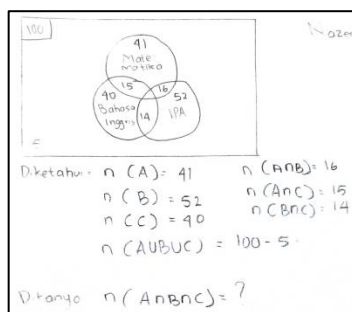 100
41
Mate
matika
15
16
40
Bahasa
Inggris
14
52
IPA
Diketahui - n (A) = 41 n (A∩B) = 16
n (B) = 52 n (A∩C) = 15
n (C) = 40 n (B∩C) = 14
n (A∪B∪C) = 100 - 5
Ditanya n (A∩B∩C) = ?